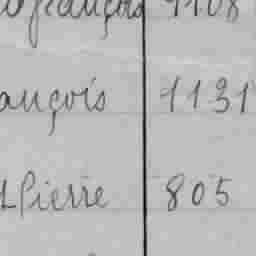 françois 1108
ançois 1131
Pierre 805